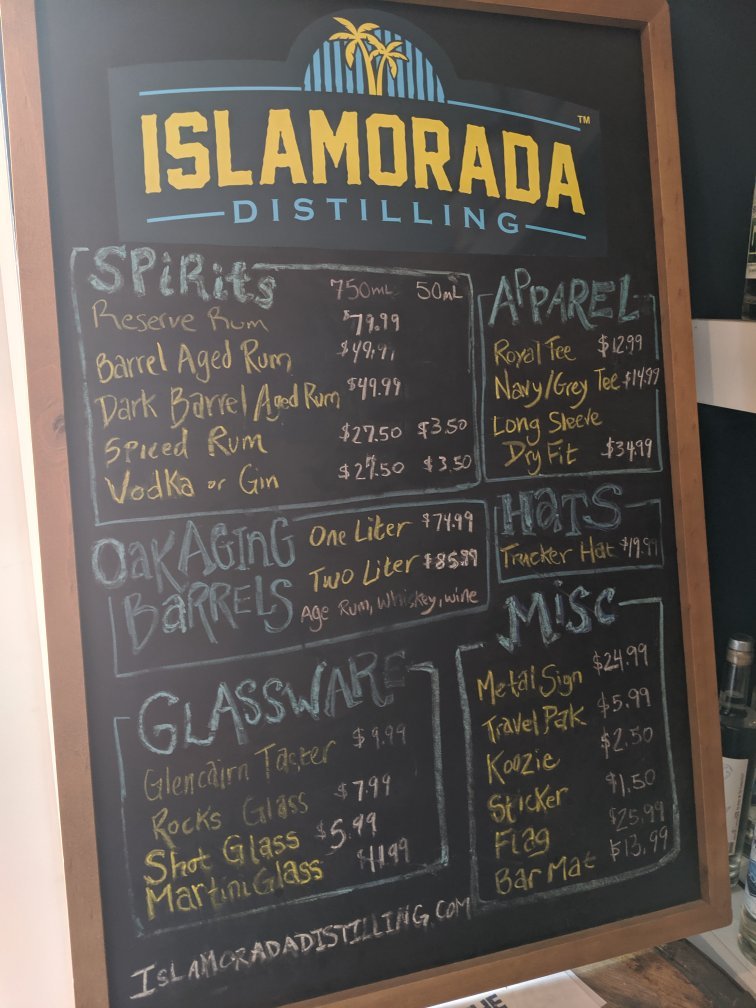 ISLAMORADA TM
DISTILLING
SPiRits 750mL 50mL
Reserve Rum $79.99
Barrel Aged Rum $49.99
Dark Barrel Aged Rum $49.99
Spiced Rum $27.50 $3.50
Vodka or Gin $27.50 $3.50
APPAREL
Royal Tee $12.99
Navy/Grey Tee $14.99
Long Sleeve
Dry Fit $34.99
OaK AGING
BaRRELS
One Liter $74.99
Two Liter $85.99
Age Rum, Whiskey, wine
HaTS
Trucker Hat $19.99
GLASSWARE
Glencairn Taster $9.99
Rocks Glass $7.99
Shot Glass $5.99
Martini Glass $11.99
MiSC
Metal Sign $24.99
Travel Pak $5.99
Koozie $2.50
Sticker $1.50
Flag $25.99
Bar Mat $13.99
ISLAMORADADISTILLING.COM